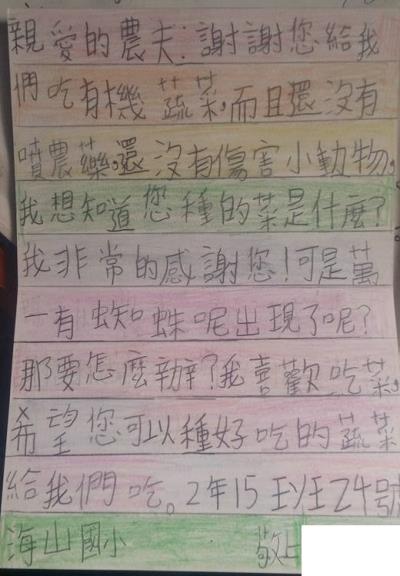 親愛的農夫：謝謝您給我
們吃有機蔬菜，而且還沒有
噴農藥，還沒有傷害小動物，
我想知道您種的菜是什麼？
我非常的感謝您！可是萬
一有蜘蛛呢出現了呢？
那要怎麼辦？我喜歡吃菜，
希望您可以種好吃的蔬菜
給我們吃。2年15班24號
海山國小 敬上